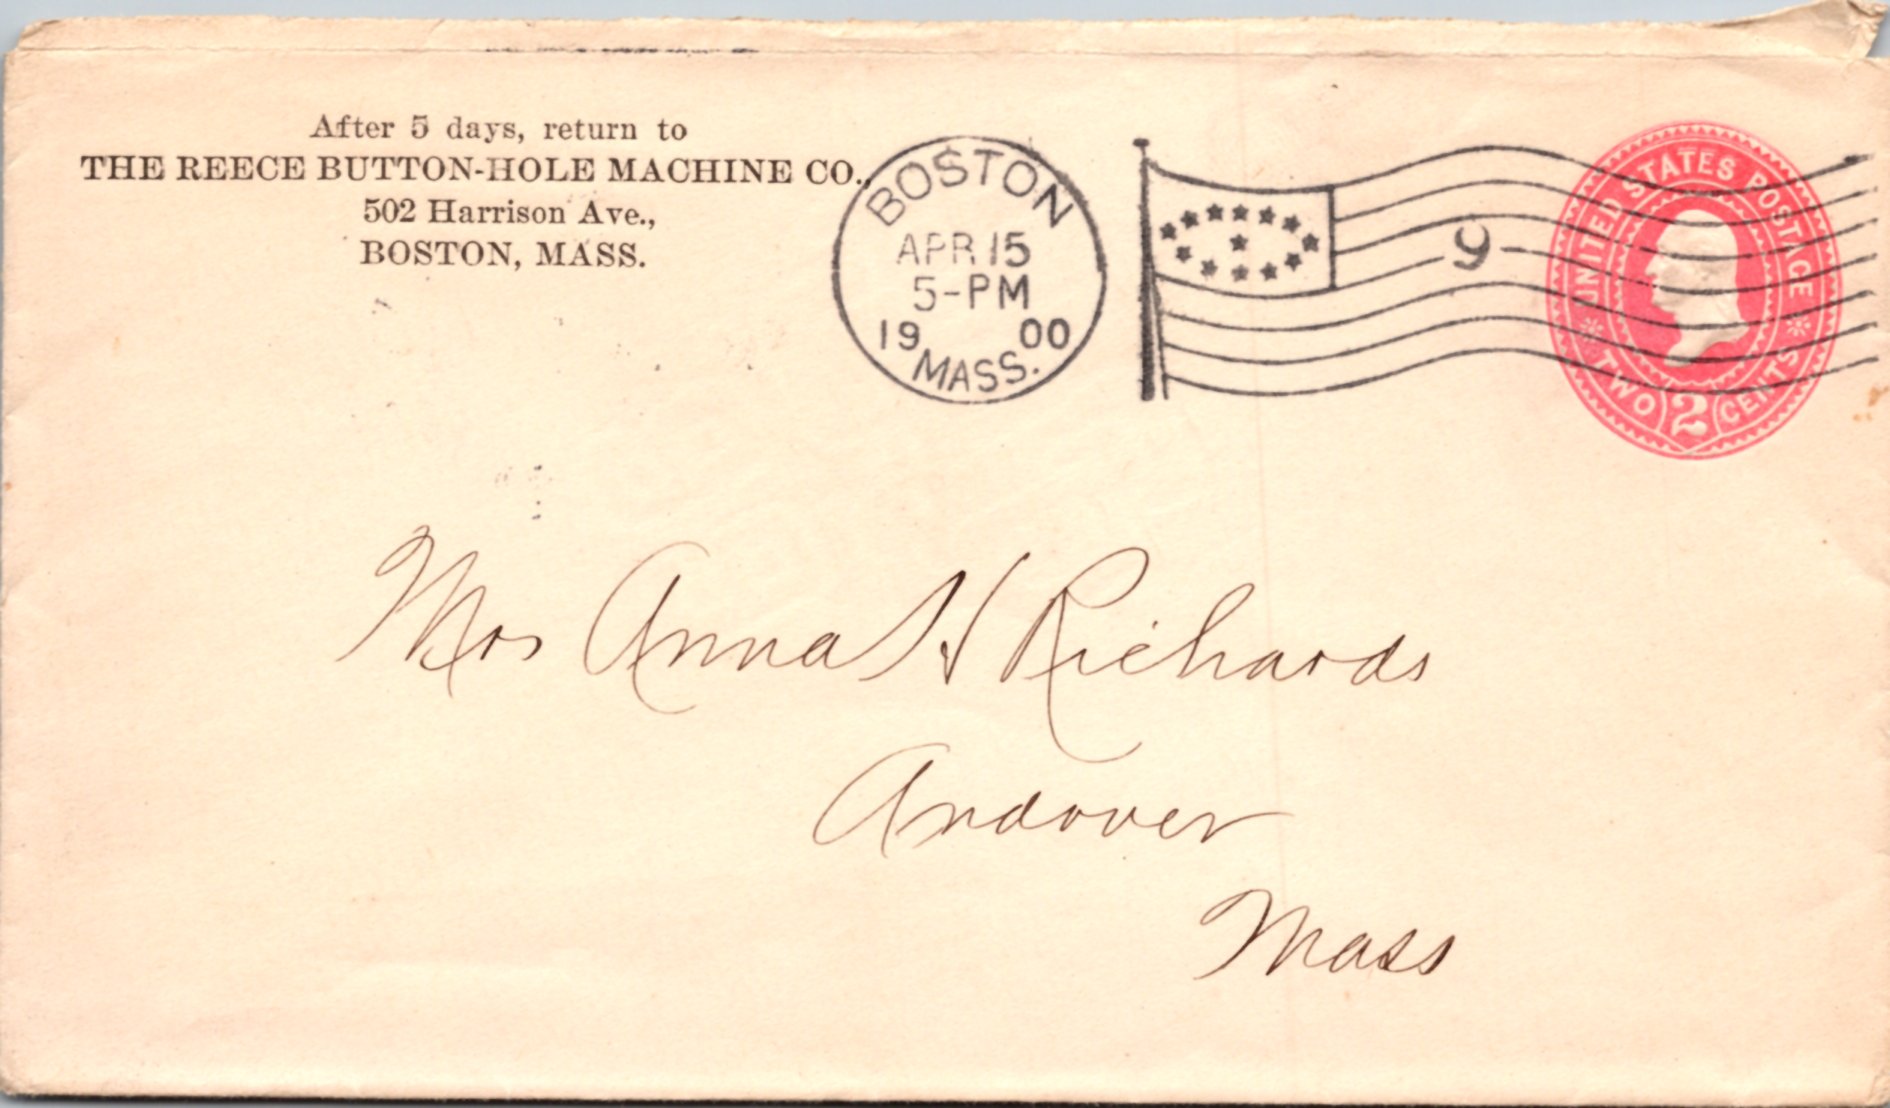 After 5 days, return to
THE REECE BUTTON-HOLE MACHINE CO.,
502 Harrison Ave.,
BOSTON, MASS.
BOSTON
APR 15
5-PM
19 00
MASS.
9
UNITED STATES POSTAGE
TWO 2 CENTS
Mrs Anna H Richards
Andover
Mass